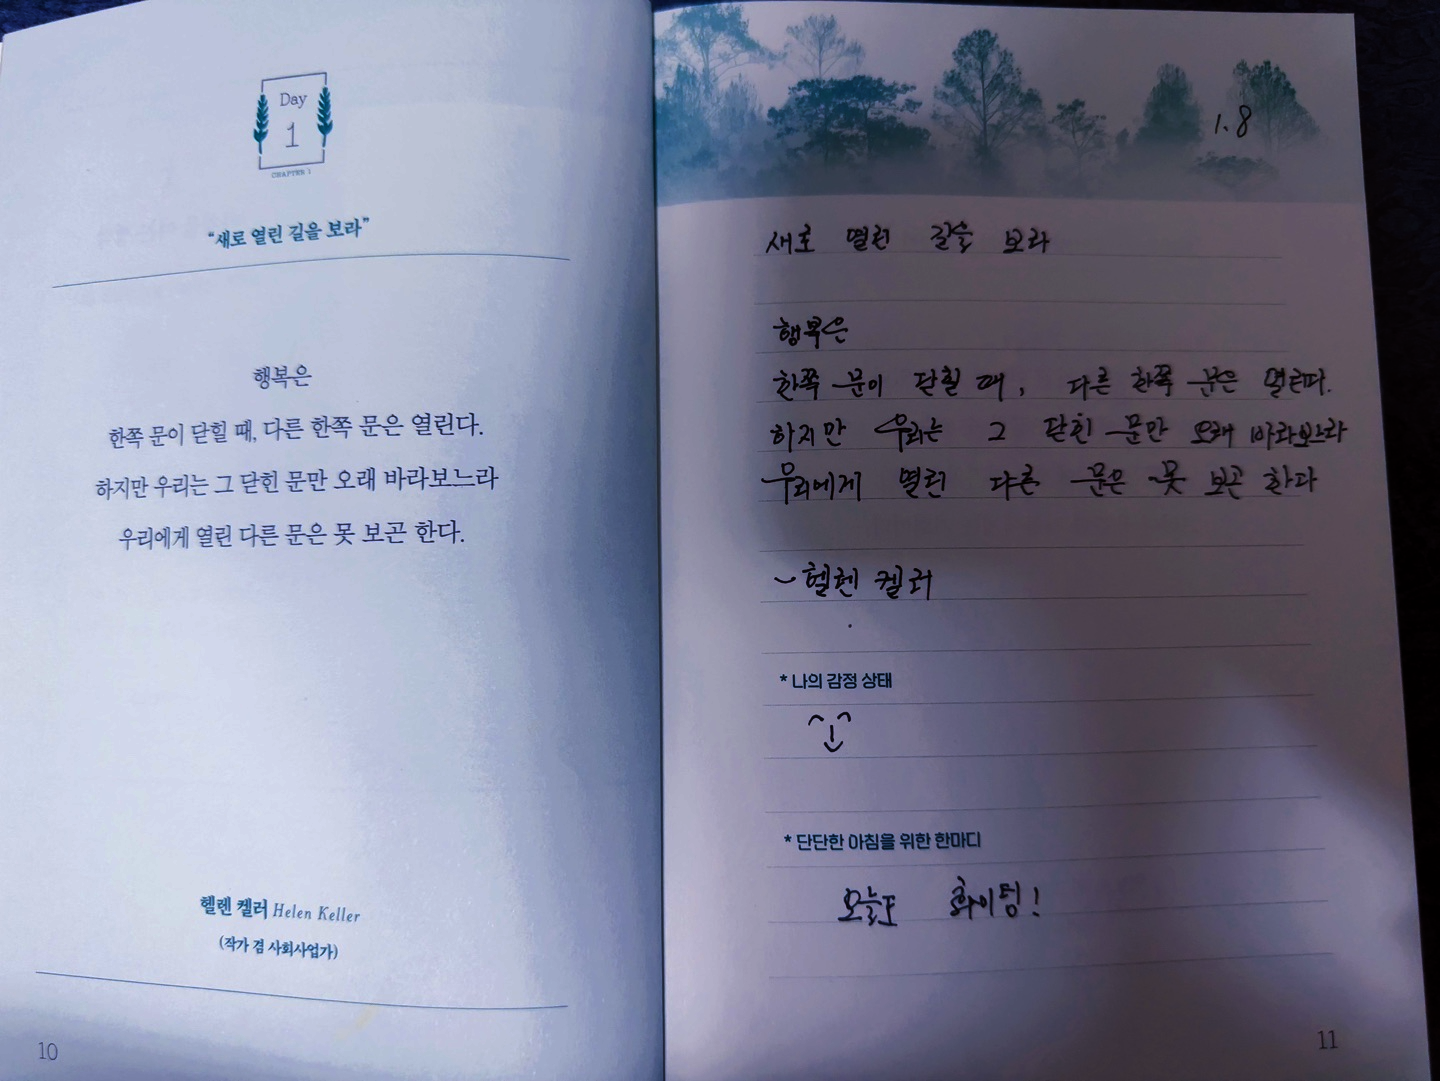 Day
1
CHAPTER 1
“새로 열린 길을 보라”
행복은
한쪽 문이 닫힐 때, 다른 한쪽 문은 열린다.
하지만 우리는 그 닫힌 문만 오래 바라보느라
우리에게 열린 다른 문은 못 보곤 한다.
헬렌 켈러 Helen Keller
(작가 겸 사회사업가)
10
1. 8
새로 열린 길을 보라
행복은
한쪽 문이 닫힐 때, 다른 한쪽 문은 열린다.
하지만 우리는 그 닫힌 문만 오래 바라보느라
우리에게 열린 다른 문은 못 보곤 한다
~헬렌 켈러
* 나의 감정 상태
* 단단한 아침을 위한 한마디
오늘도 화이팅!
11